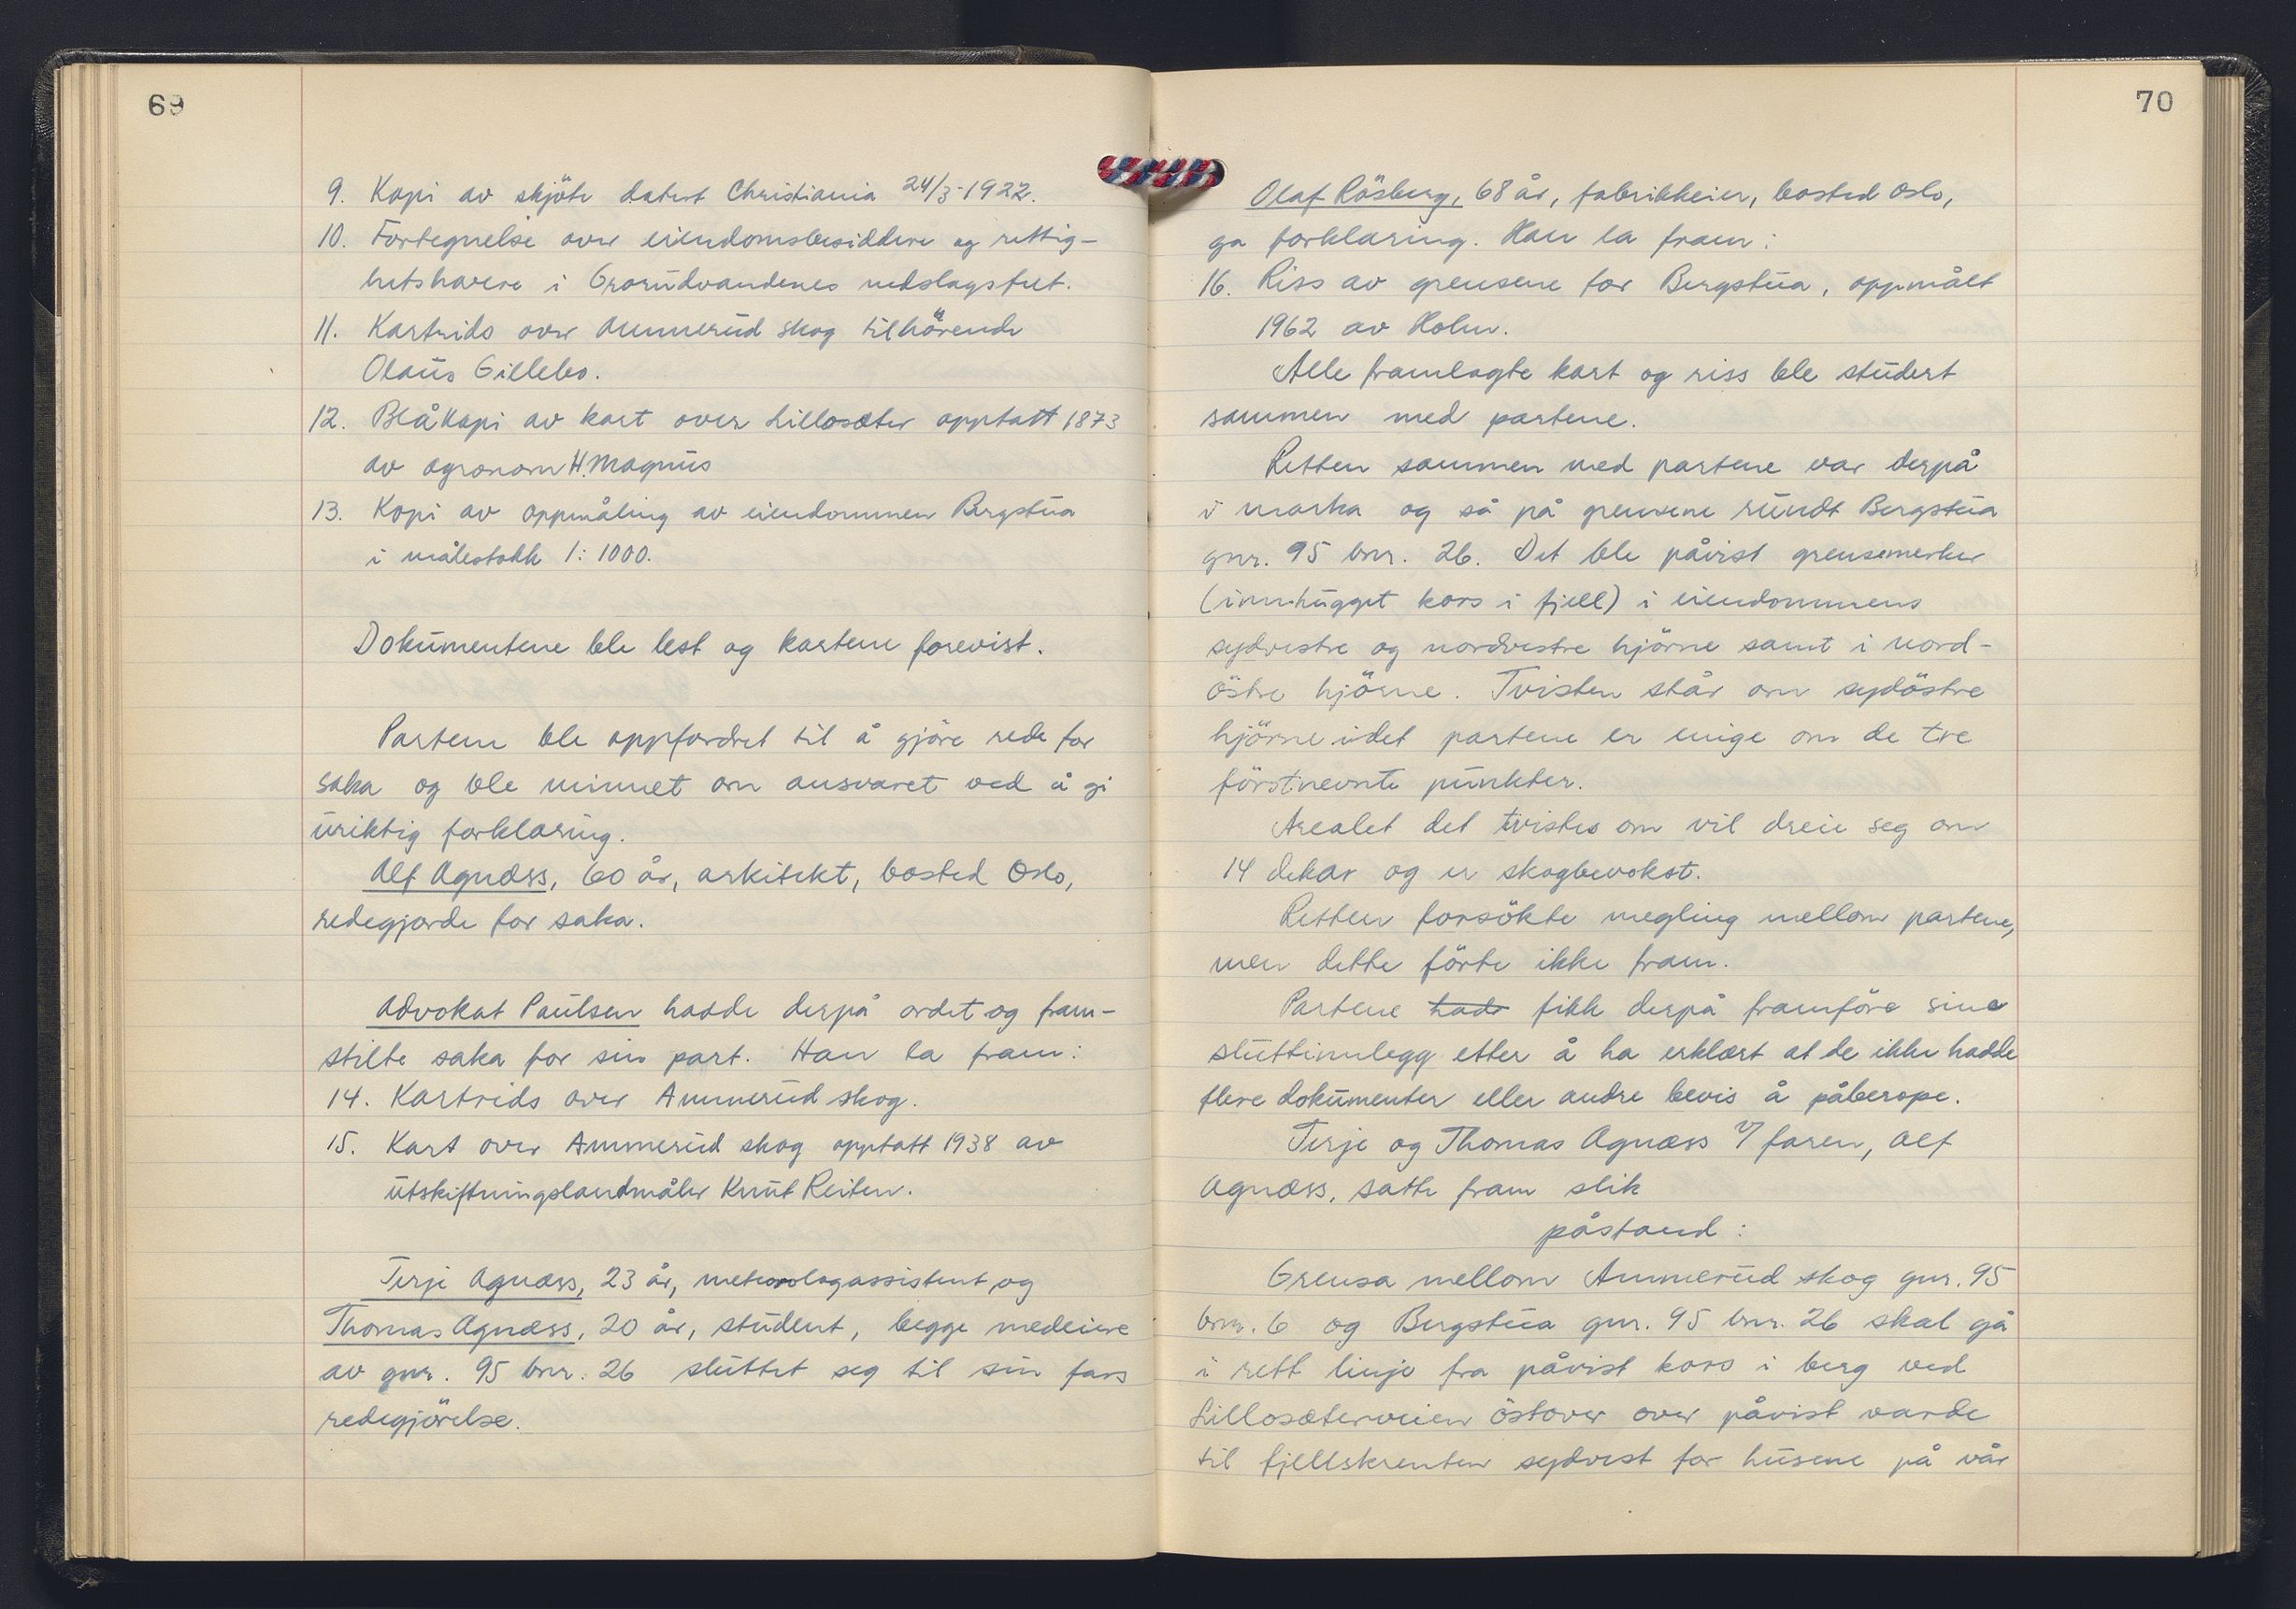 69
9. Kopi av skjöte datert Christiania 24/3-1922.
10. Fortegnelse over eiendomsbesiddere og rettig-
hetshavere i Grorudvandenes nedslagsfelt.
11. Kartrids over Ammerud skog tilhörende
Olaus Gillebo.
12. Blåkopi av kart over Lillosæter opptatt 1873
av agronom H. Magnus
13. Kopi av oppmåling av eiendommen Bergstua
i målestokk 1:1000.
Dokumentene ble lest og kartene forevist.
Partene ble oppfordret til å gjöre rede for
saka og ble minnet om ansvaret ved å gi
uriktig forklaring.
Alf Agnæss, 60 år, arkitekt, bosted Oslo,
redegjorde for saka.
Advokat Paulsen hadde derpå ordet og fram-
stilte saka for sin part. Han la fram:
14. Kartrids over Ammerud skog.
15. Kart over Ammerud skog opptatt 1938 av
utskiftningslandmåler Knut Reiten.
Terje Agnæss, 23 år, meteorologassistent, og
Thomas Agnæss, 20 år, student, begge medeiere
av gnr. 95 bnr. 26 sluttet seg til sin fars
redegjörelse.
70
Olaf Rösberg, 68 år, fabrikkeier, bosted Oslo,
ga forklaring. Han la fram:
16. Riss av grensene for Bergstua, oppmålt
1962 av Holm.
Alle framlagte kart og riss ble studert
sammen med partene.
Retten sammen med partene var derpå
i marka og så på grensene rundt Bergstua
gnr. 95 bnr. 26. Det ble påvist grensemerker
(innhugget kors i fjell) i eiendommens
sydvestre og nordvestre hjörne samt i nord-
östre hjörne. Tvisten står om sydöstre
hjörne idet partene er enige om de tre
förstnevnte punkter.
Arealet det tvistes om vil dreie seg om
14 dekar og er skogbevokst.
Retten forsökte megling mellom partene,
men dette förte ikke fram.
Partene hade fikk derpå framföre sine
sluttinnlegg etter å ha erklært at de ikke hadde
flere dokumenter eller andre bevis å påberope.
Terje og Thomas Agnæss v/ faren, Alf
Agnæss, satte fram slik
påstand:
Grensa mellom Ammerud skog gnr. 95
bnr. 6 og Bergstua gnr. 95 bnr. 26 skal gå
i rett linje fra påvist kors i berg ved
Lillosæterveien östover over påvist varde
til fjellskrenten sydvest for husene på vår